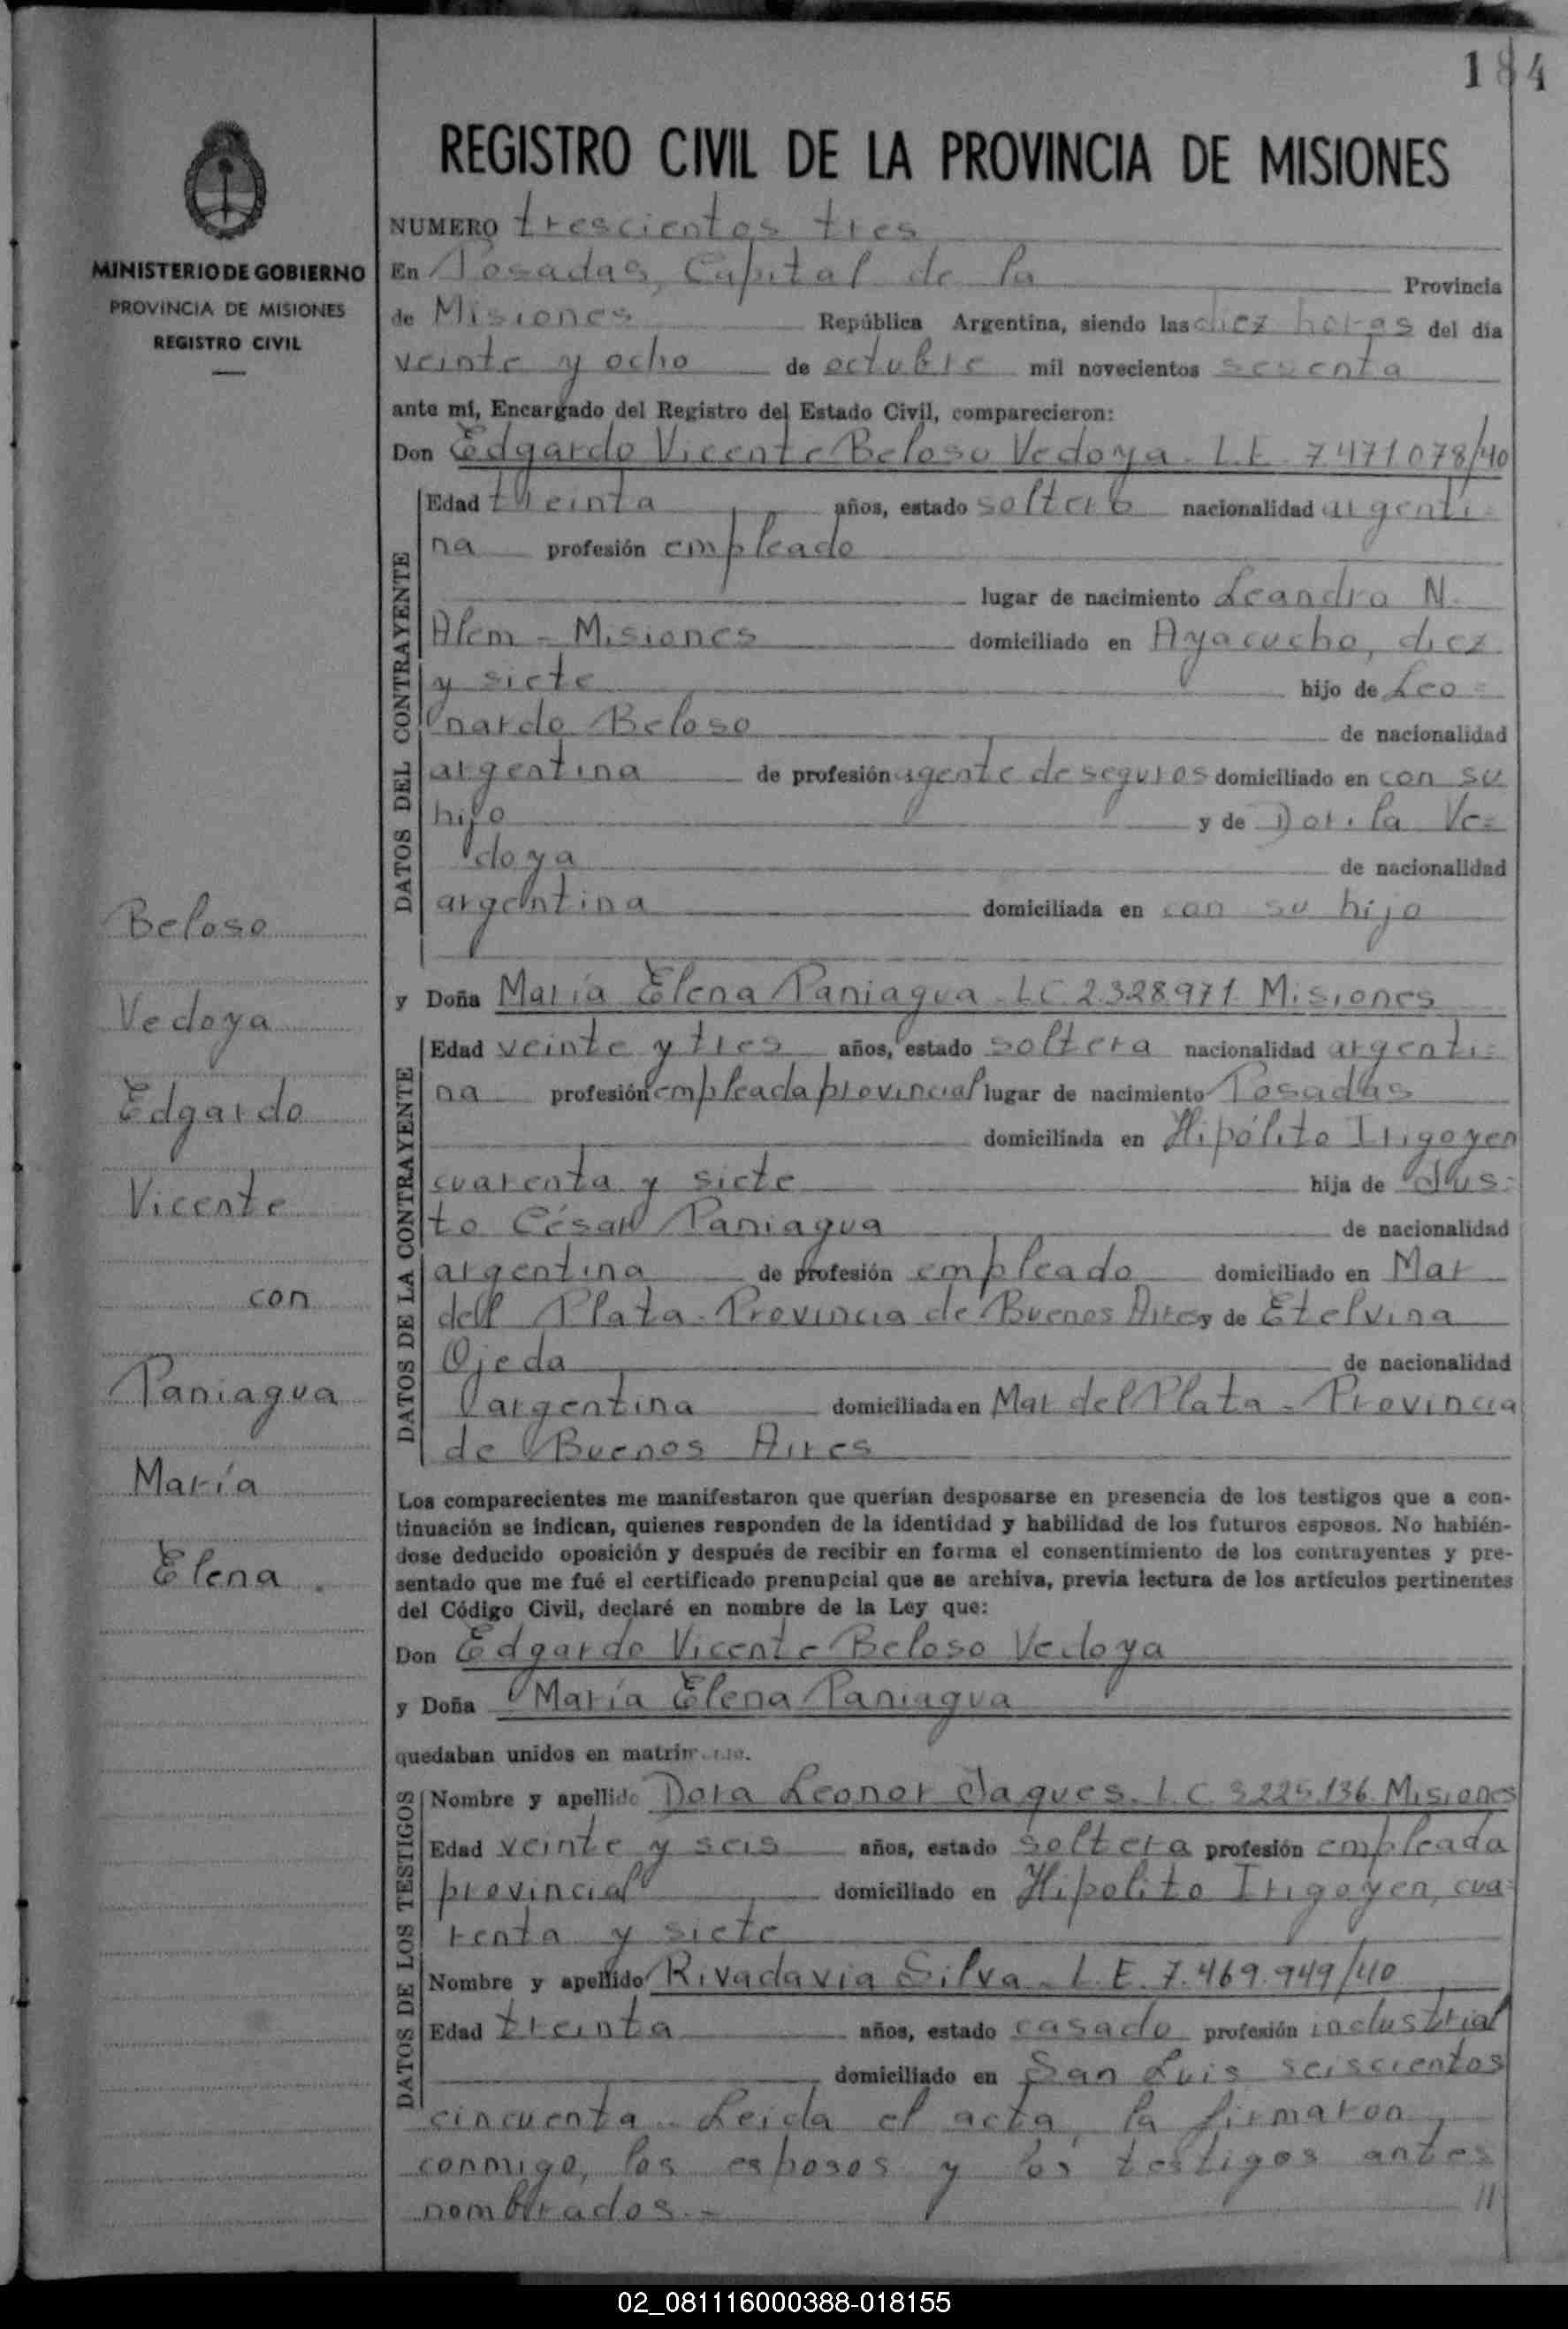 184
REGISTRO CIVIL DE LA PROVINCIA DE MISIONES
MINISTERIO DE GOBIERNO
PROVINCIA DE MISIONES
REGISTRO CIVIL
Beloso
Vedoya
Edgardo
Vicente
con
Paniagua
María
Elena.
NUMERO trescientos tres
En Posadas, Capital de la Provincia
de Misiones República Argentina, siendo las diez horas del día
veinte y ocho de octubre mil novecientos sesenta
ante mí, Encargado del Registro del Estado Civil, comparecieron:
Don Edgardo Vicente Beloso Vedoya - L.E. 7471078/40
DATOS DEL CONTRAYENTE
Edad treinta años, estado soltero nacionalidad argenti=
na profesión empleado
lugar de nacimiento Leandro N.
Alem - Misiones domiciliado en Ayacucho, diez
y siete hijo de Leo=
nardo Beloso de nacionalidad
argentina de profesión agente de seguros domiciliado en con su
hijo y de Dorila Ve=
doya de nacionalidad
argentina domiciliada en con su hijo
y Doña María Elena Paniagua - LC 2.328.971 Misiones
DATOS DE LA CONTRAYENTE
Edad veinte y tres años, estado soltera nacionalidad argenti=
na profesión empleada provincial lugar de nacimiento Posadas
domiciliada en Hipólito Irigoyen
cuarenta y siete hija de Jus=
to César Paniagua de nacionalidad
argentina de profesión empleado domiciliado en Mar
dell Plata - Provincia de Buenos Aires y de Etelvina
Ojeda de nacionalidad
argentina domiciliada en Mar del Plata - Provincia
de Buenos Aires
Los comparecientes me manifestaron que querían desposarse en presencia de los testigos que a con-
tinuación se indican, quienes responden de la identidad y habilidad de los futuros esposos. No habién-
dose deducido oposición y después de recibir en forma el consentimiento de los contrayentes y pre-
sentado que me fué el certificado prenupcial que se archiva, previa lectura de los artículos pertinentes
del Código Civil, declaré en nombre de la Ley que:
Don Edgardo Vicente Beloso Vedoya
y Doña María Elena Paniagua
quedaban unidos en matrimonio.
DATOS DE LOS TESTIGOS
Nombre y apellido Dora Leonor Jaques. L.C. 3225.136. Misiones
Edad veinte y seis años, estado soltera profesión empleada
provincial domiciliado en Hipolito Irigoyen, cua=
renta y siete
Nombre y apellido Rivadavia Silva - L.E. 7.469.949/40
Edad treinta años, estado casado profesión industrial
domiciliado en San Luis seiscientos
cincuenta - Leida el acta, la firmaron,
conmigo, los esposos y los testigos antes
nombrados.- //
02_081116000388-018155